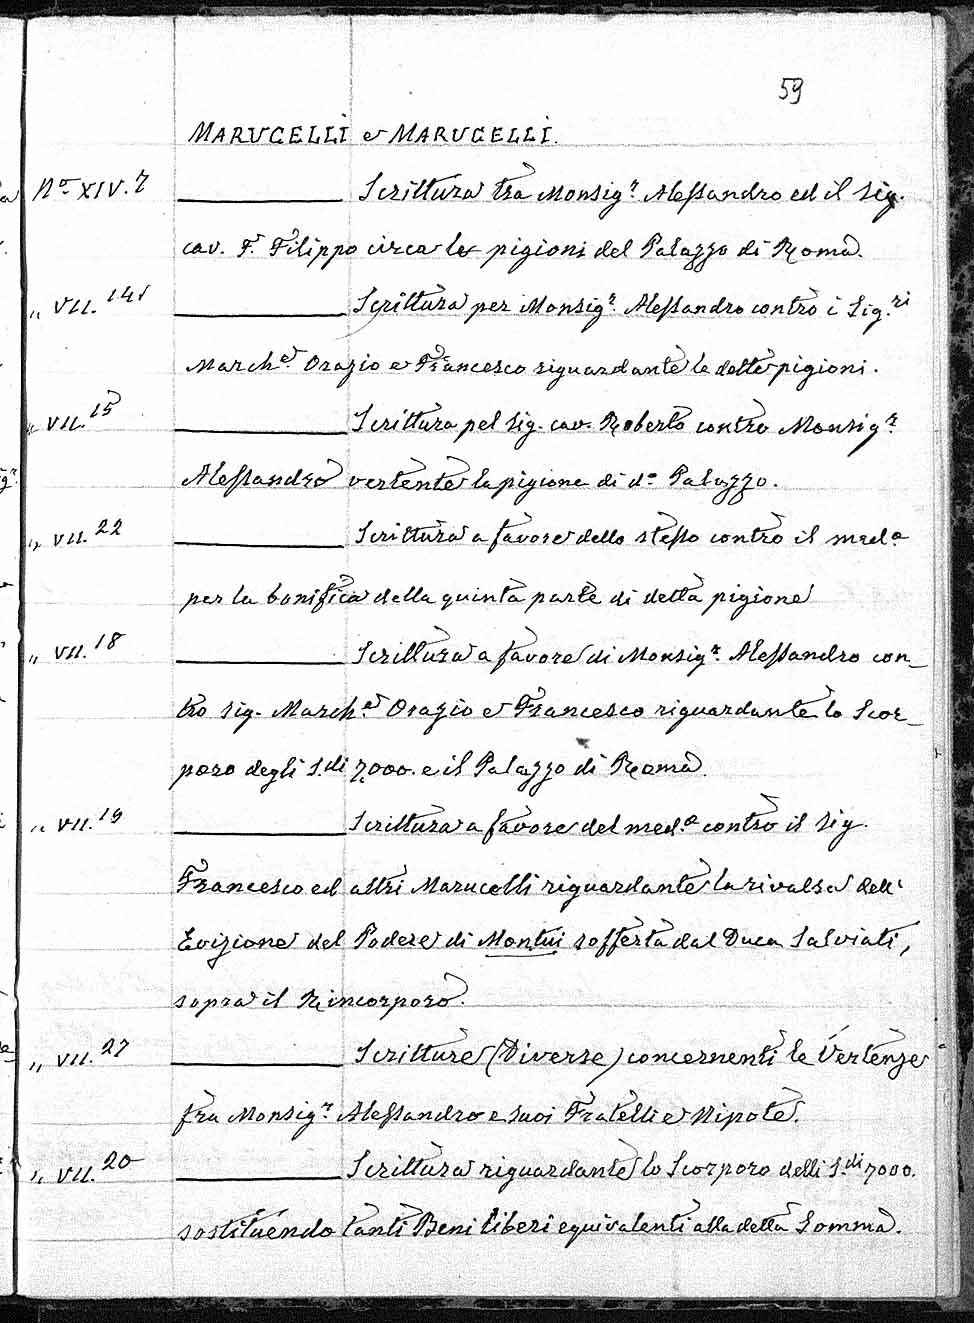 59
MARUCELLI e MARUCELLI.
Nº XIV. 7 Scrittura tra Monsigʳ. Alessandro ed il Sig.
cav. F. Filippo circa le pigioni del Palazzo di Roma.
„ VII. 14 Scrittura per Monsigʳ. Alessandro contro i Sig.ʳⁱ
Marchᵉ. Orazio e Francesco riguardante le dette pigioni.
„ VII. 15 Scrittura pel Sig. cav. Roberto contro Monsigʳ.
Alessandro vertente la pigione di dº Palazzo.
„ VII. 22 Scrittura a favore dello stesso contro il medº
per la bonifica della quinta parte di detta pigione
„ VII. 18 Scrittura a favore di Monsigʳ. Alessandro con_
tro sig. Marchᵉ. Orazio e Francesco riguardante lo Scor_
poro degli S.di 7000. e il Palazzo di Roma.
„ VII. 19 Scrittura a favore del medº contro il Sig.
Francesco ed altri Marucelli riguardante la rivalsa dell'
Evizione del Podere di Montui sofferta dal Duca Salviati,
sopra il Rincorporo.
„ VII. 27 Scritture (Diverse) concernenti le Vertenze
fra Monsigʳ. Alessandro e suoi Fratelli e Nipote.
„ VII. 20 Scrittura riguardante lo Scorporo delli S.di 7000.
sostituendo tanti Beni liberi equivalenti alla detta Somma.